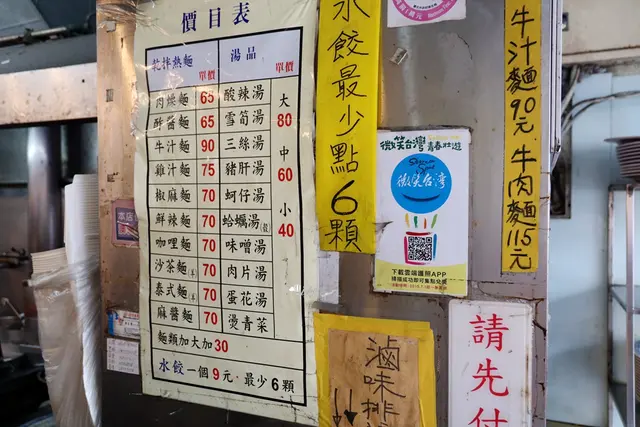 價目表
乾拌熱麵 單價 湯品 單價
肉燥麵 65 酸辣湯 大
酢醬麵 65 雪筍湯 80
牛汁麵 90 三絲湯 中
雞汁麵 75 豬肝湯 60
椒麻麵 70 蚵仔湯 小
鮮辣麵 70 蛤蠣湯 40
咖哩麵 70 味噌湯
沙茶麵 70 肉片湯
泰式麵 70 蛋花湯
麻醬麵 70 燙青菜
麵類加大加30
水餃一個9元‧最少6顆
水餃最少點6顆
牛汁麵90元 牛肉麵115元
微笑台灣
青春壯遊
微笑台灣
下載雲端護照APP
滷味
請先付